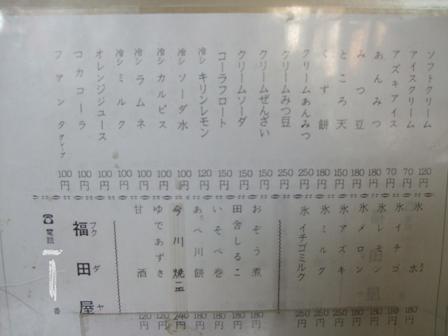 ソフトクリーム 120円
アイスクリーム 70円
アズキアイス 70円
あんみつ 180円
みつ豆 160円
ところ天 150円
くず餅 150円
クリームあんみつ 250円
クリームみつ豆 250円
クリームぜんざい
クリームソーダ 150円
コーラフロート 150円
冷シ キリンレモン 120円
冷シ ソーダ水 100円
冷シ カルピス 100円
冷シ ラムネ 100円
冷シ ミルク 100円
オレンジジュース 100円
コカコーラ 100円
ファンタグレープ 100円
氷 水
氷 イチゴ 180円
氷 レモン 180円
氷 メロン 180円
氷 アズキ
氷 ミルク
氷 イチゴミルク 250円
おぞう煮
田舎しるこ 180円
いそべ巻 180円
あべ川餅 180円
今川焼 240円
ゆであずき 120円
甘酒 120円
福田屋
フクダヤ
電話
番